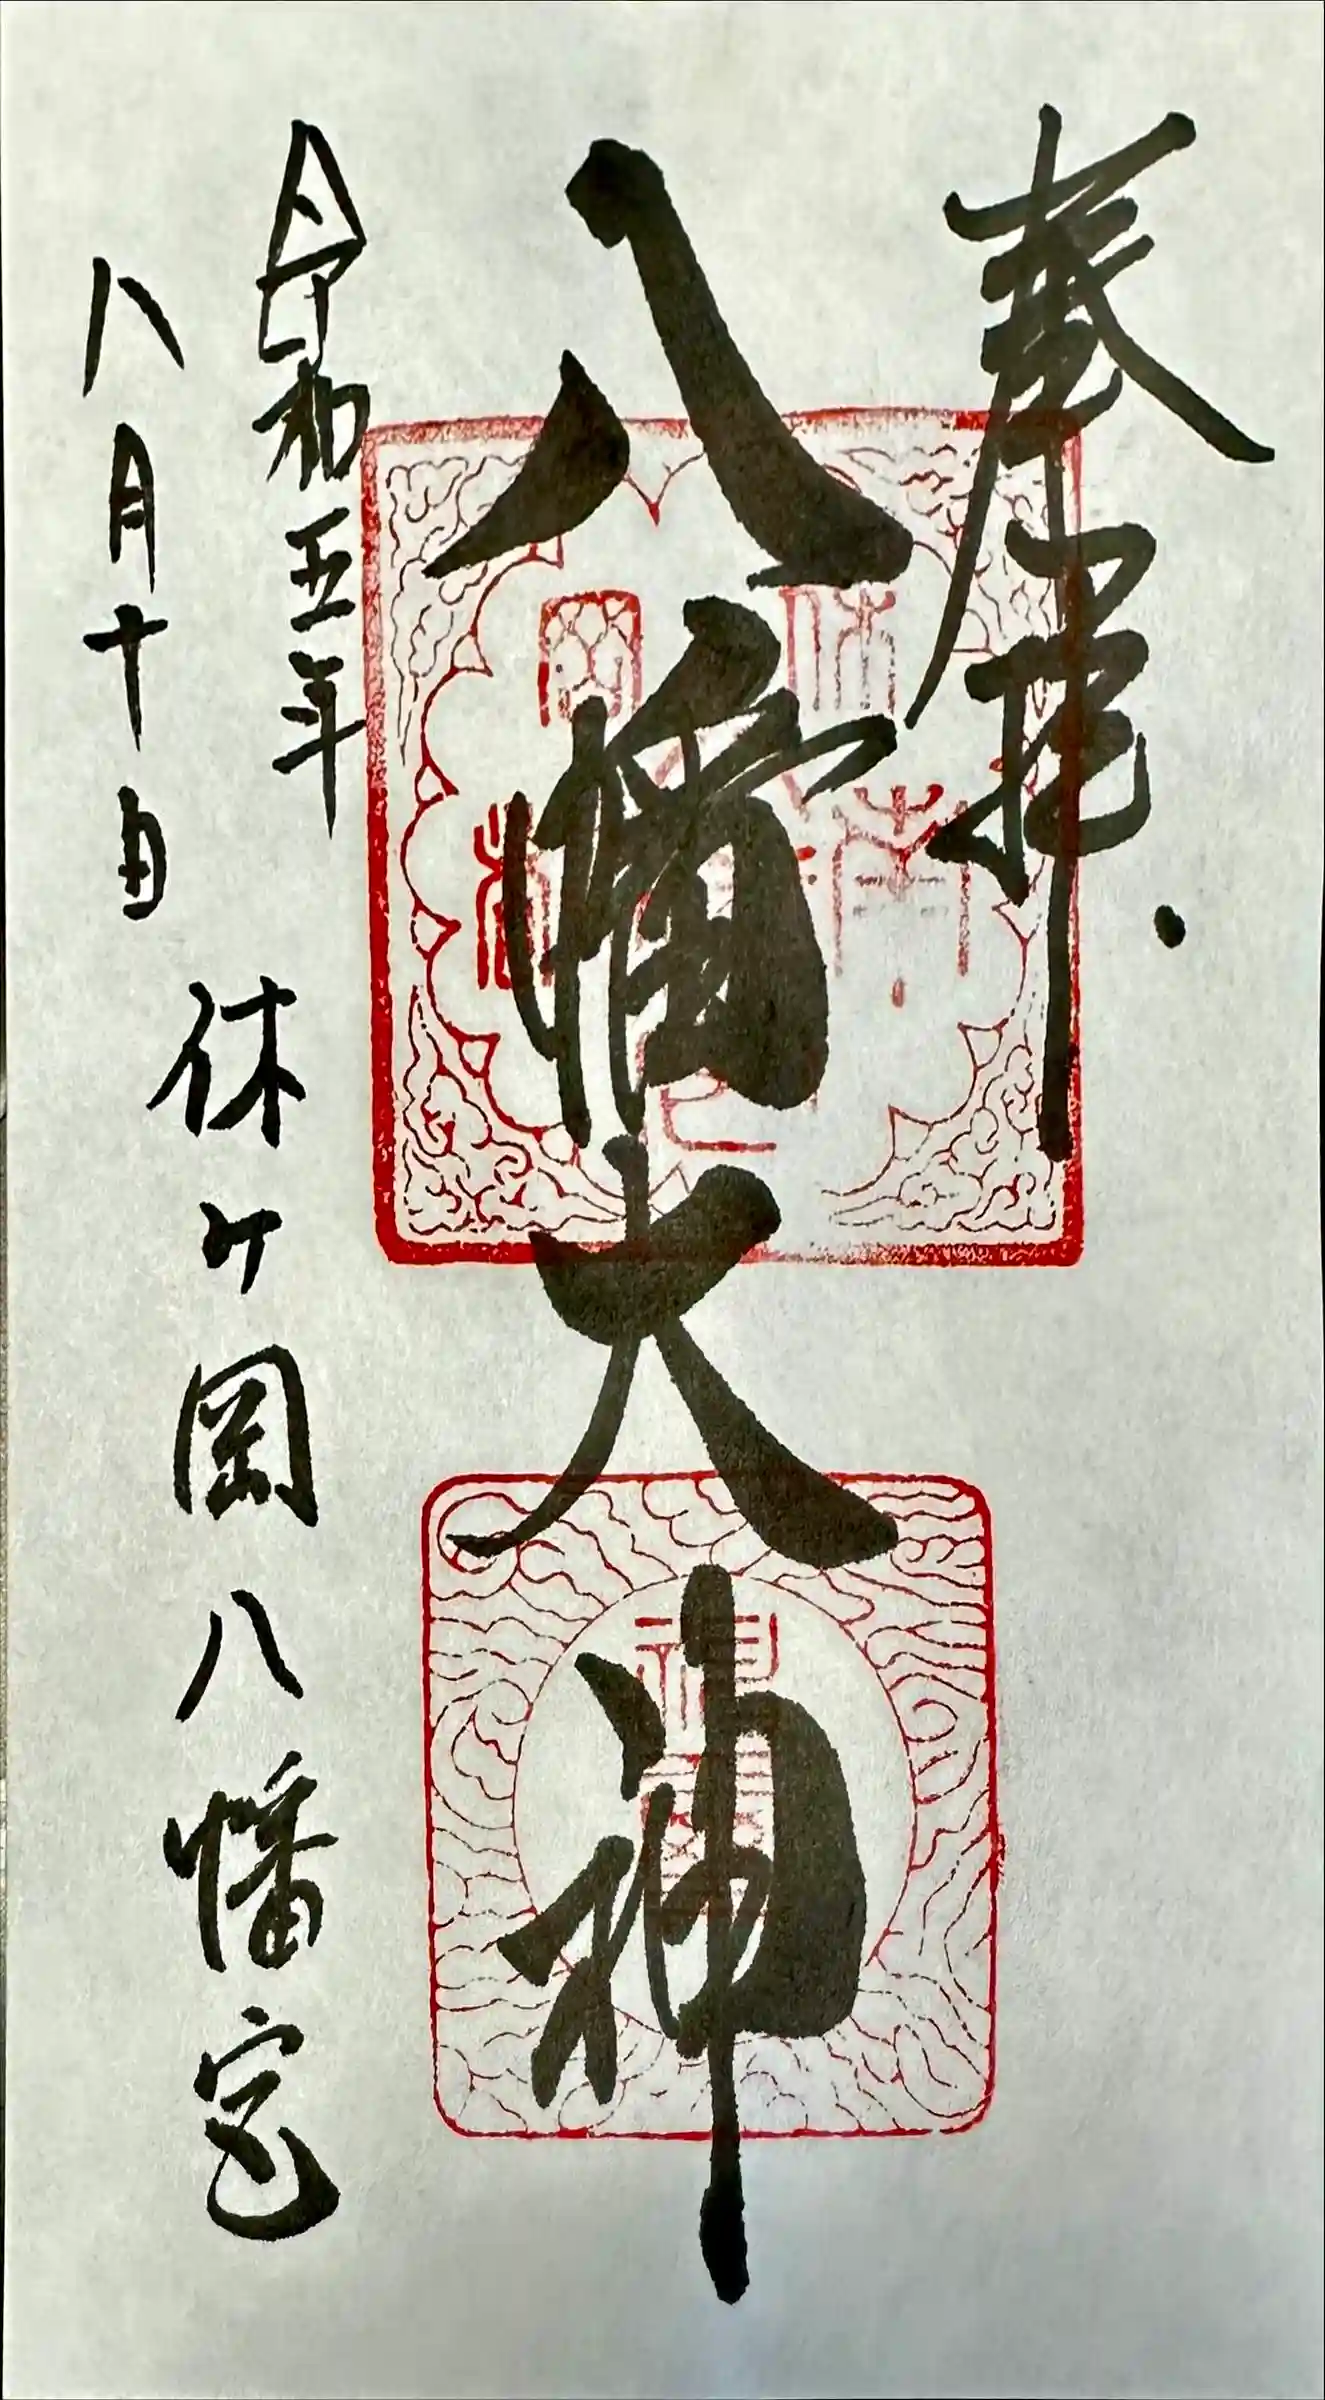 奉拝
八幡大神
令和五年
八月十日
休ヶ岡八幡宮